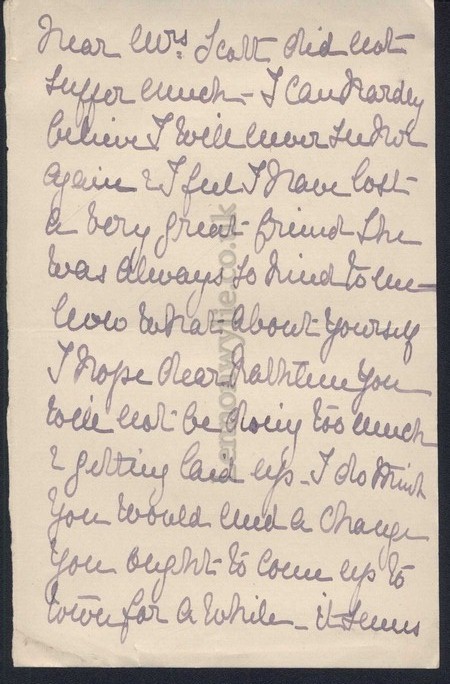 Dear Mrs. Scott did not
suffer much - I can hardly
believe I will never see her
again & I feel I have lost
a very great friend she
was always so kind to me -
Now what about yourself
I hope dear Kathleen you
will not be doing too much
& getting laid up - I do think
you would need a change
you ought to come up to
town for a while - it seems